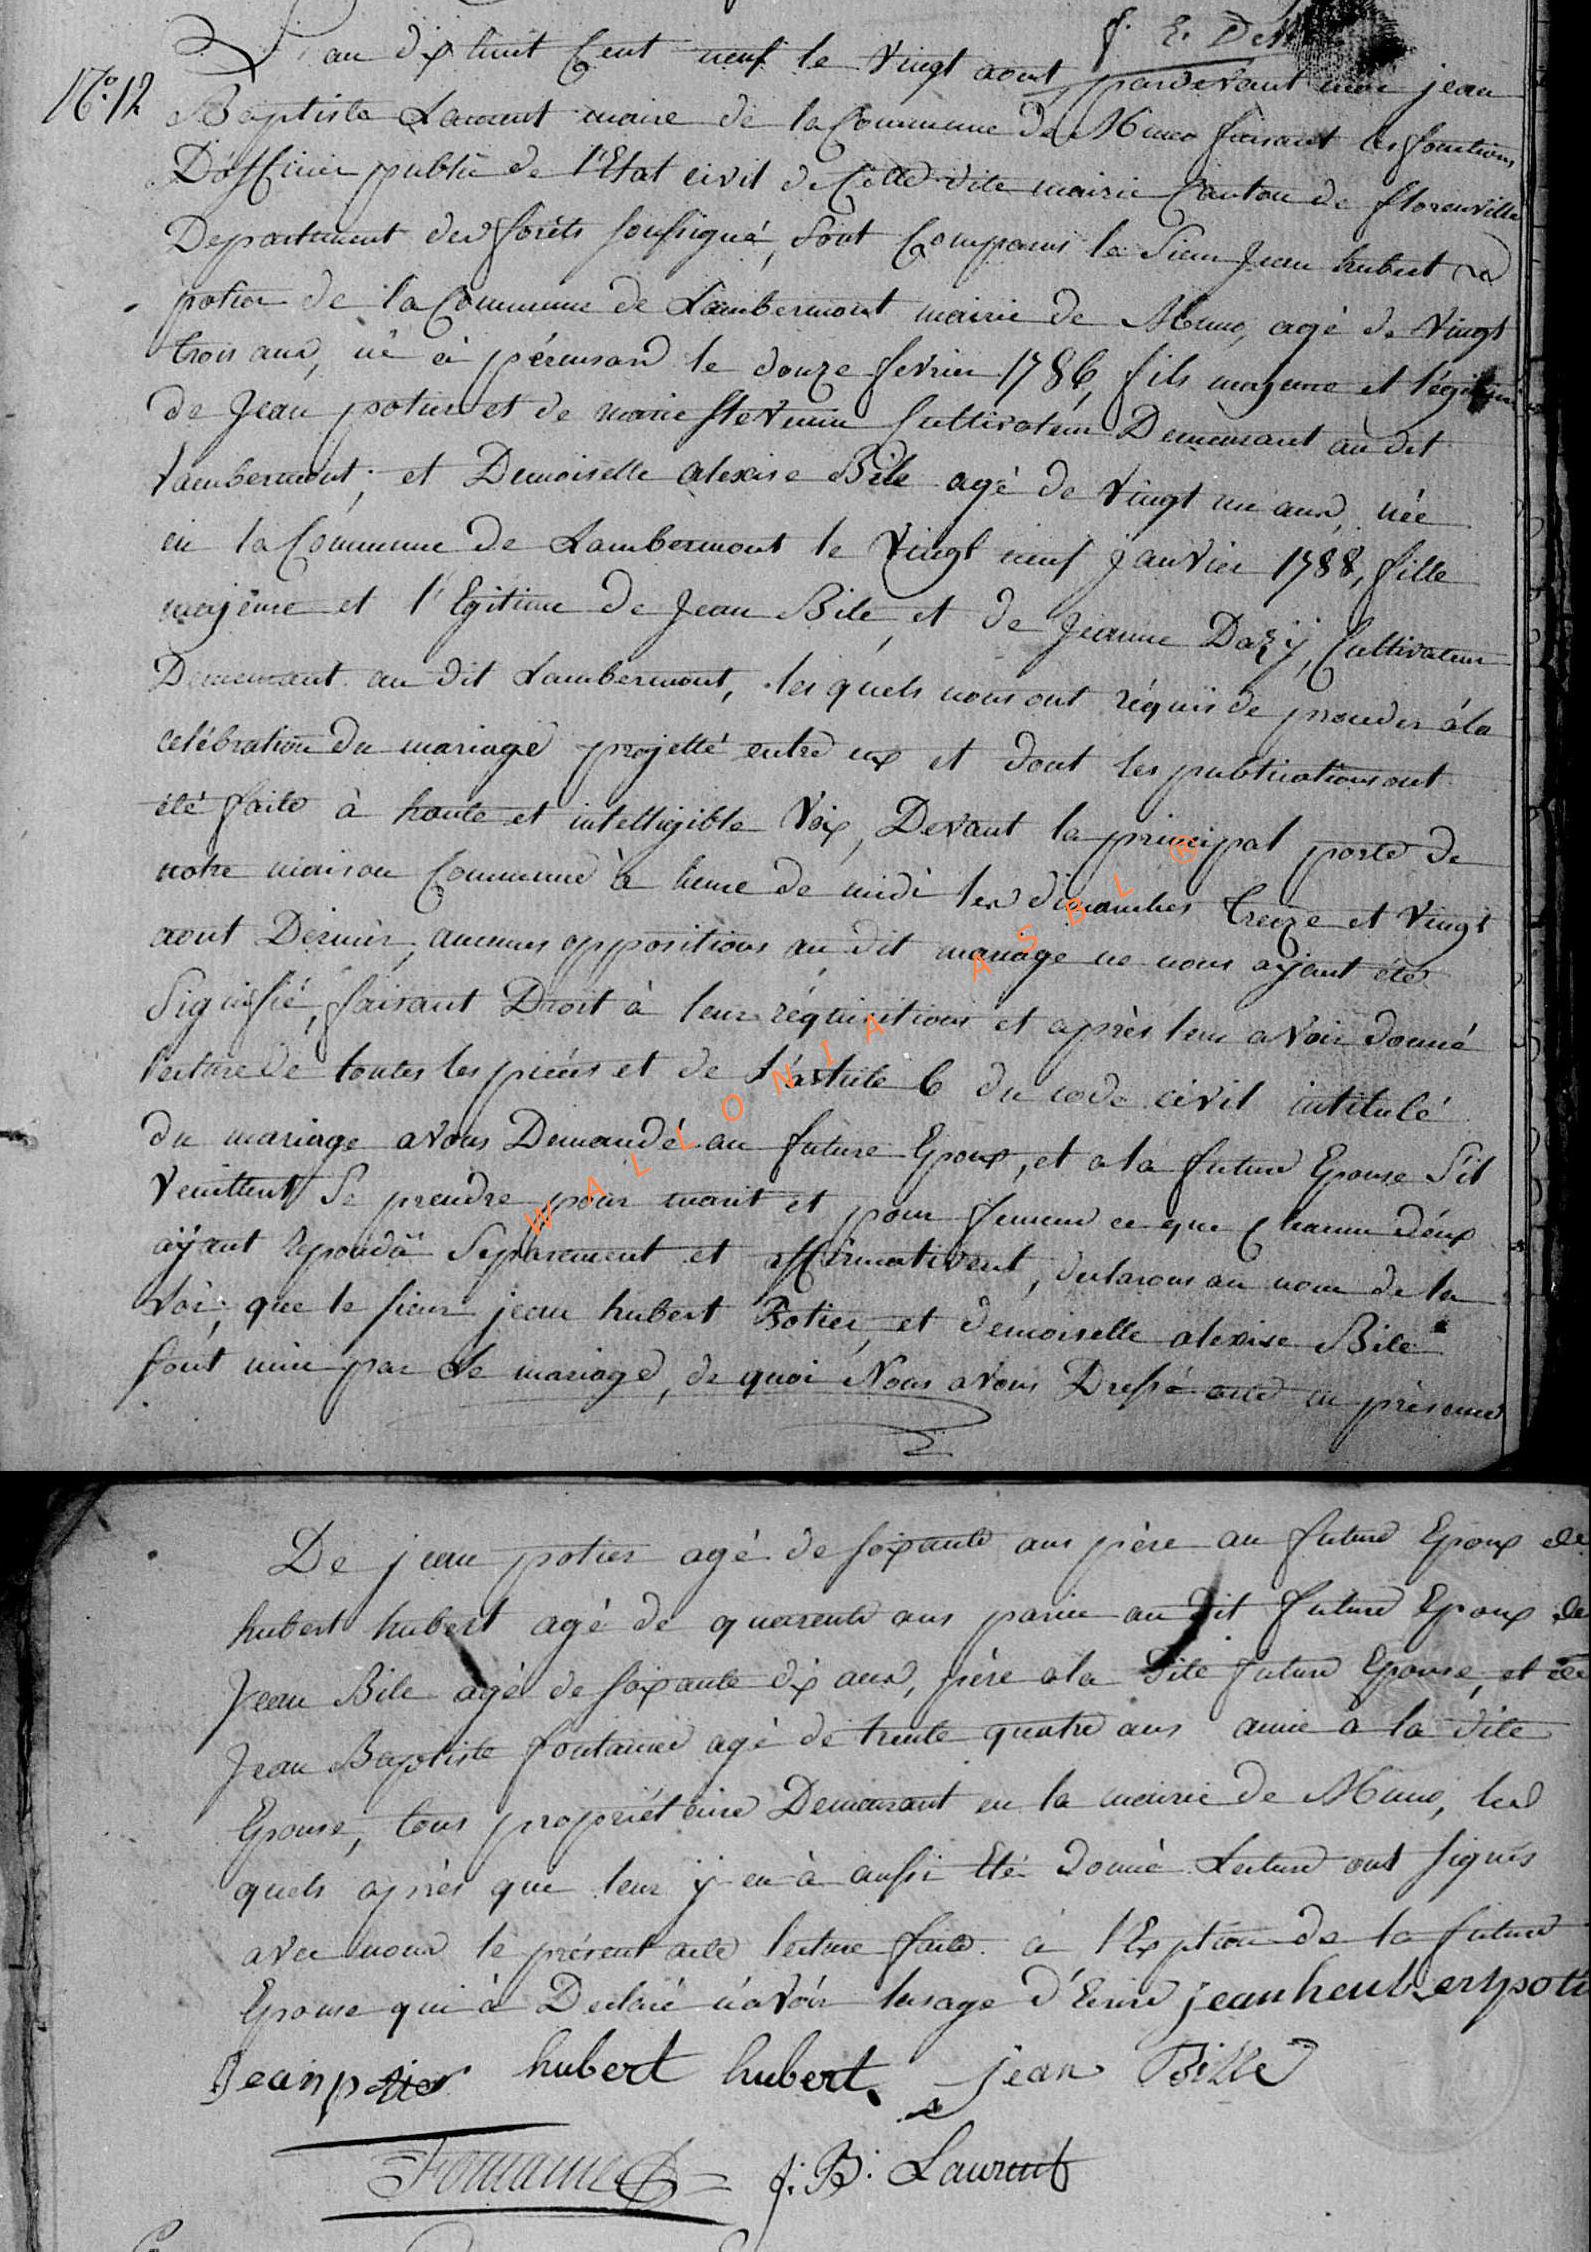 f. E. Des
L'an dix huit Cent neuf le Vingt aout pardevant moi jean
N.° 12
Baptiste Laurent maire de la Commune de Muno faisant les fonctions
D'officier public de l'Etat civil de Cette dite mairie Canton de florenville
Departement des forêts soussigné, sont Comparus le Sieur Jean hubert
potier de la Commune de Lambermont mairie de Muno, agé de Vingt
trois ans, né à le douze fevrier 1786, fils majeure et légitime
de Jean potier et de marie stevenin Cultivateur Demeurant au dit
Lambermont; et Demoiselle alexise Bile agé de Vingt un ans, née
en la Commune de Lambermont le Vingt neuf janvier 1788, fille
majeure et l'Egitime de Jean Bile, et de Jeanne Dazÿ, Cultivateur
Demeurant au dit Lambermont, les quels nous ont réquis de proceder à la
celébration du mariage projetté entre eux et dont les publications ont
été faite à haute et intelligible Voix, Devant la principal porte de
notre maison Commune à heure de midi les dimanches treize et Vingt
aout Dernier, aucunes oppositions au dit mariage ne nous aÿant été
Signifié, faisant Droit à leur réquisitions et après leur avoir donné
lecture de toutes les piéces et de L'article 6 du code civil intitulé
du mariage avons Demandé au future Epoux, et a la future Epouse S'il
Veuillent Se prendre pour marit et pour femme ce que chacun d'éux
aÿant repondu Separement et affirmativent, declarons au nom de la
Loi, que le sieur jean hubert Potier, et demoiselle alexise Bile
sont unie par Le mariage, de quoi Nous avons Dressé acte en présence
WALLONIA ASBL ®
De jean potier agé de soixante ans père au future Epoux de
hubert hubert agé de quarente ans parin au dit future Epoux de
Jean Bile agé de soixante dix ans, père a la dite future Epouse, et de
Jean Baptiste fontaine agé de trente quatre ans amie à la dite
Epouse, tous propriétaire Demeurant en la mairie de Muno, les
quels après que leur ÿ en à aussi Eté donné Lecture ont signés
avec nous le présent acte lecture faite à l'Exption de la future
Epouse qui à Declaré n'avoir lusage d'Ecrire jean heubert poti
Jean potier hubert hubert. jean Bille
Fontaine J: B: Laurent